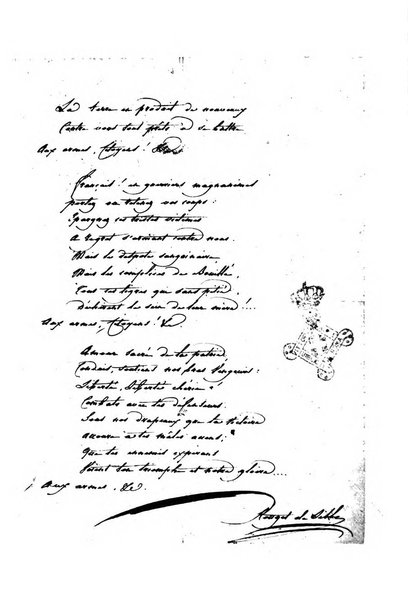 La terre en produit de nouveaux
Contre vous tout prêts à se battre
Aux armes, Citoyens! &c.
Français! en guerriers magnanimes
portez ou retenez vos coups:
Epargnez ces tristes victimes
A regret s'armant contre nous.
Mais le despote sanguinaire,
Mais les complices de Bouillé,
Tous ces tigres qui sans pitié,
Déchirent le sein de leur mère!...
Aux armes, Citoyens! &c
Amour sacré de la patrie,
Conduis, soutiens nos bras vengeurs:
Liberté, Liberté chérie!
Combats avec tes défenseurs.
Sous nos drapeaux que la victoire
accoure à tes mâles accens;
Que tes ennemis expirant
Voient ton triomphe et notre gloire...
Aux armes. &c
Rouget de Lisle